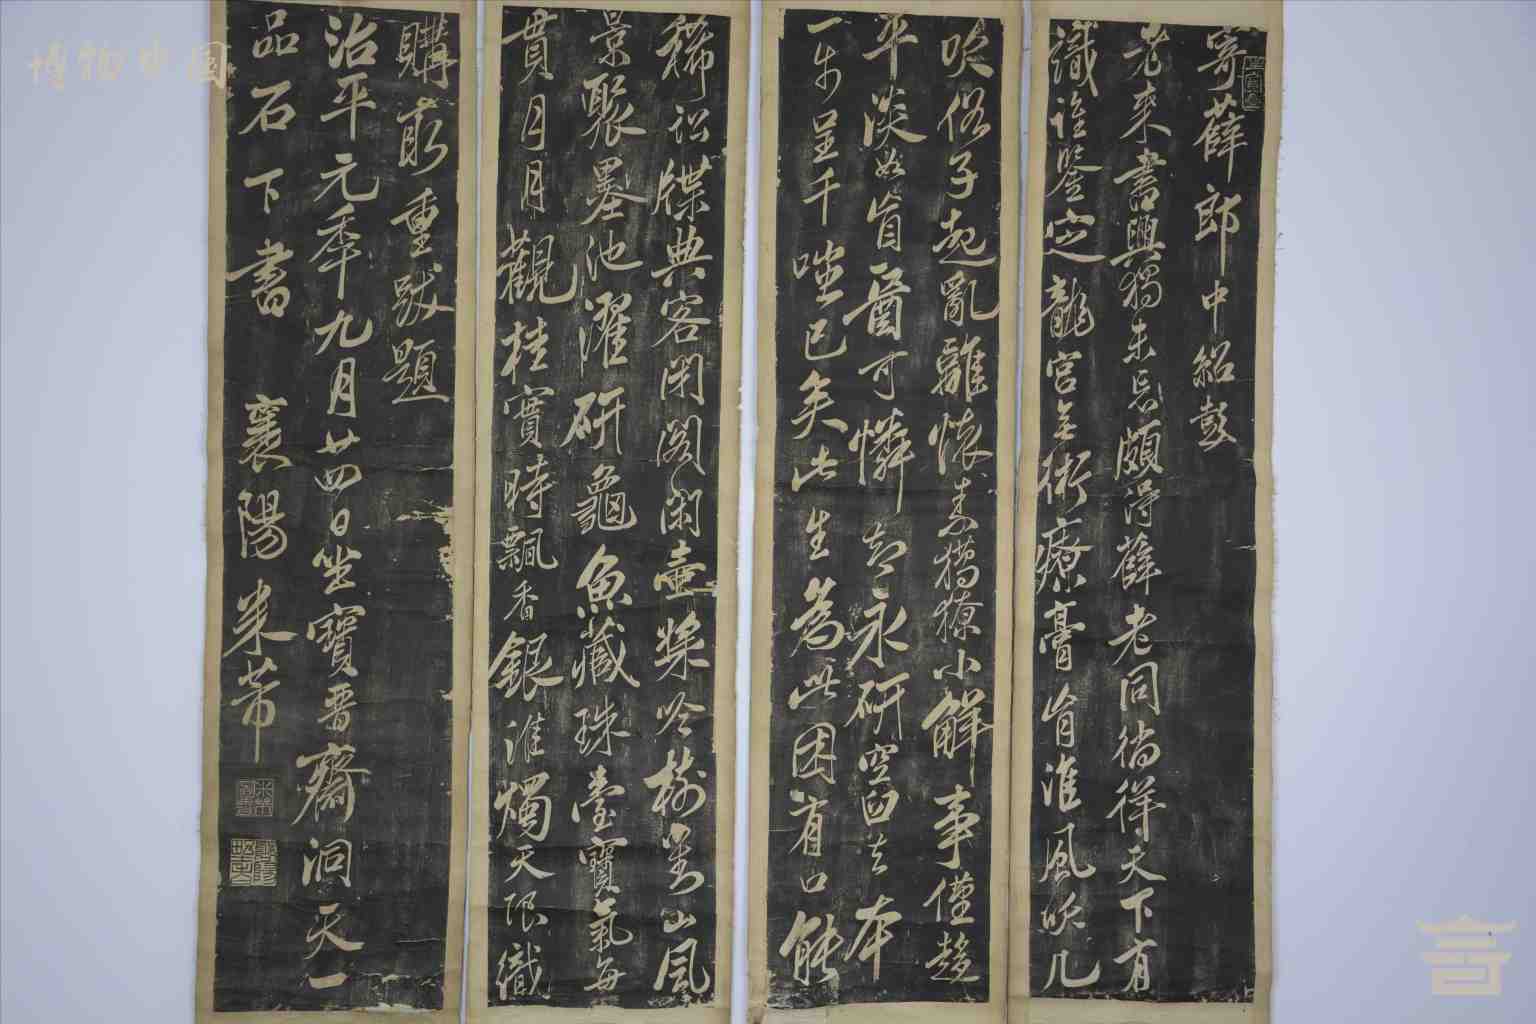 寄薛郎中紹彭
老來書興獨未忘頗得薛老同徜徉天下有
識誰鑒定龍宮無術療膏肓淮風吹几
吹俗子起亂離懷素獦獠小解事僅趨
平淡如盲醫可憐智永研空臼去本
一步呈千嗤已矣此生為此困有口能
稀訟牒典客閉閣閑壺槳吟樹對山風
景聚墨池濯研龜魚藏珠臺寶氣每
貫月月觀桂實時飄香銀淮燭天限織
購取重跋題
治平元年九月廿四日坐寶晉齋洞天一
品石下書 襄陽米芾
博物中国